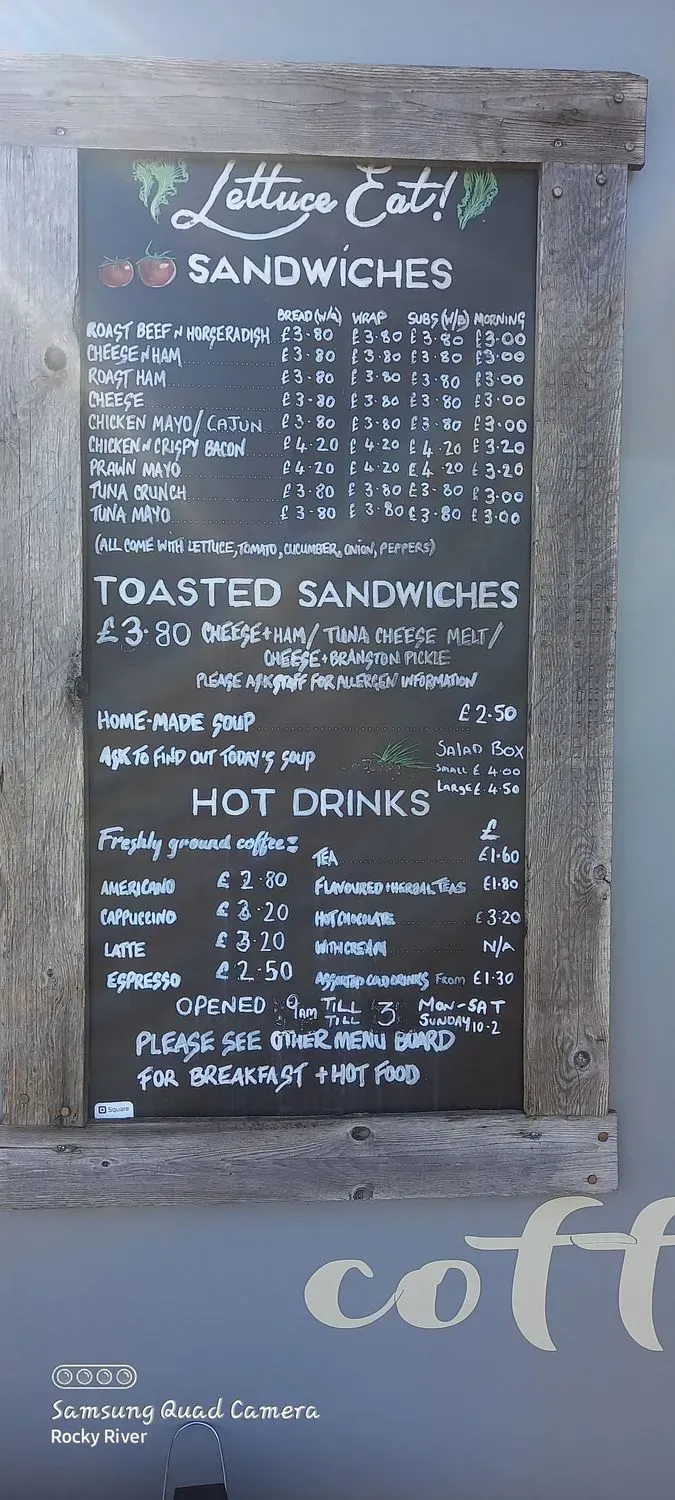 Lettuce Eat!
SANDWICHES
BREAD (W/B) WRAP SUBS (W/B) MORNING
ROAST BEEF N HORSERADISH £3.80 £3.80 £3.80 £3.00
CHEESE N HAM £3.80 £3.80 £3.80 £3.00
ROAST HAM £3.80 £3.80 £3.80 £3.00
CHEESE £3.80 £3.80 £3.80 £3.00
CHICKEN MAYO/CAJUN £3.80 £3.80 £3.80 £3.00
CHICKEN N CRISPY BACON £4.20 £4.20 £4.20 £3.20
PRAWN MAYO £4.20 £4.20 £4.20 £3.20
TUNA CRUNCH £3.80 £3.80 £3.80 £3.00
TUNA MAYO £3.80 £3.80 £3.80 £3.00
(ALL COME WITH LETTUCE, TOMATO, CUCUMBER, ONION, PEPPERS)
TOASTED SANDWICHES
£3.80 CHEESE+HAM/ TUNA CHEESE MELT/
CHEESE+BRANSTON PICKLE
PLEASE ASK STAFF FOR ALLERGEN INFORMATION
HOME-MADE SOUP £2.50
ASK TO FIND OUT TODAY'S SOUP
SALAD BOX
SMALL £4.00
LARGE £4.50
HOT DRINKS
Freshly ground coffee:
AMERICANO £2.80
CAPPUCCINO £3.20
LATTE £3.20
ESPRESSO £2.50
£
TEA £1.60
FLAVOURED+HERBAL TEAS £1.80
HOT CHOCOLATE £3.20
WITH CREAM N/A
ASSORTED COLD DRINKS From £1.30
OPENED 9am TILL 3 MON-SAT
TILL SUNDAY 10-2
PLEASE SEE OTHER MENU BOARD
FOR BREAKFAST + HOT FOOD
Square
coff
Samsung Quad Camera
Rocky River